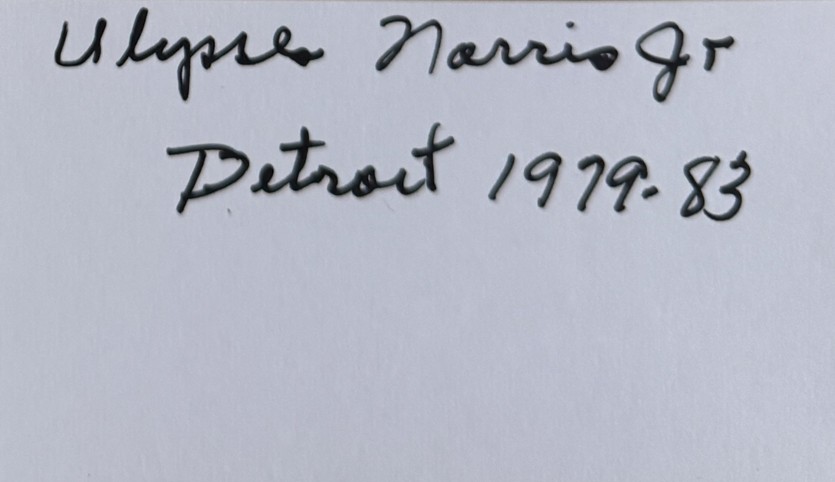 Ulysses Norris Jr
Detroit 1979-83